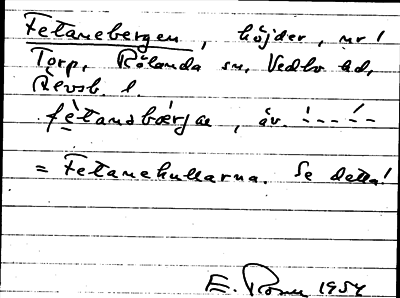 Fetanebergen, höjder, nr 1
Torp, Rölanda sn, Vedbo hd,
Älvsb. l.
fètansbærjan, äv. ! - - - ´ - -
= Fetanekullarna. Se detta!
E. 1954